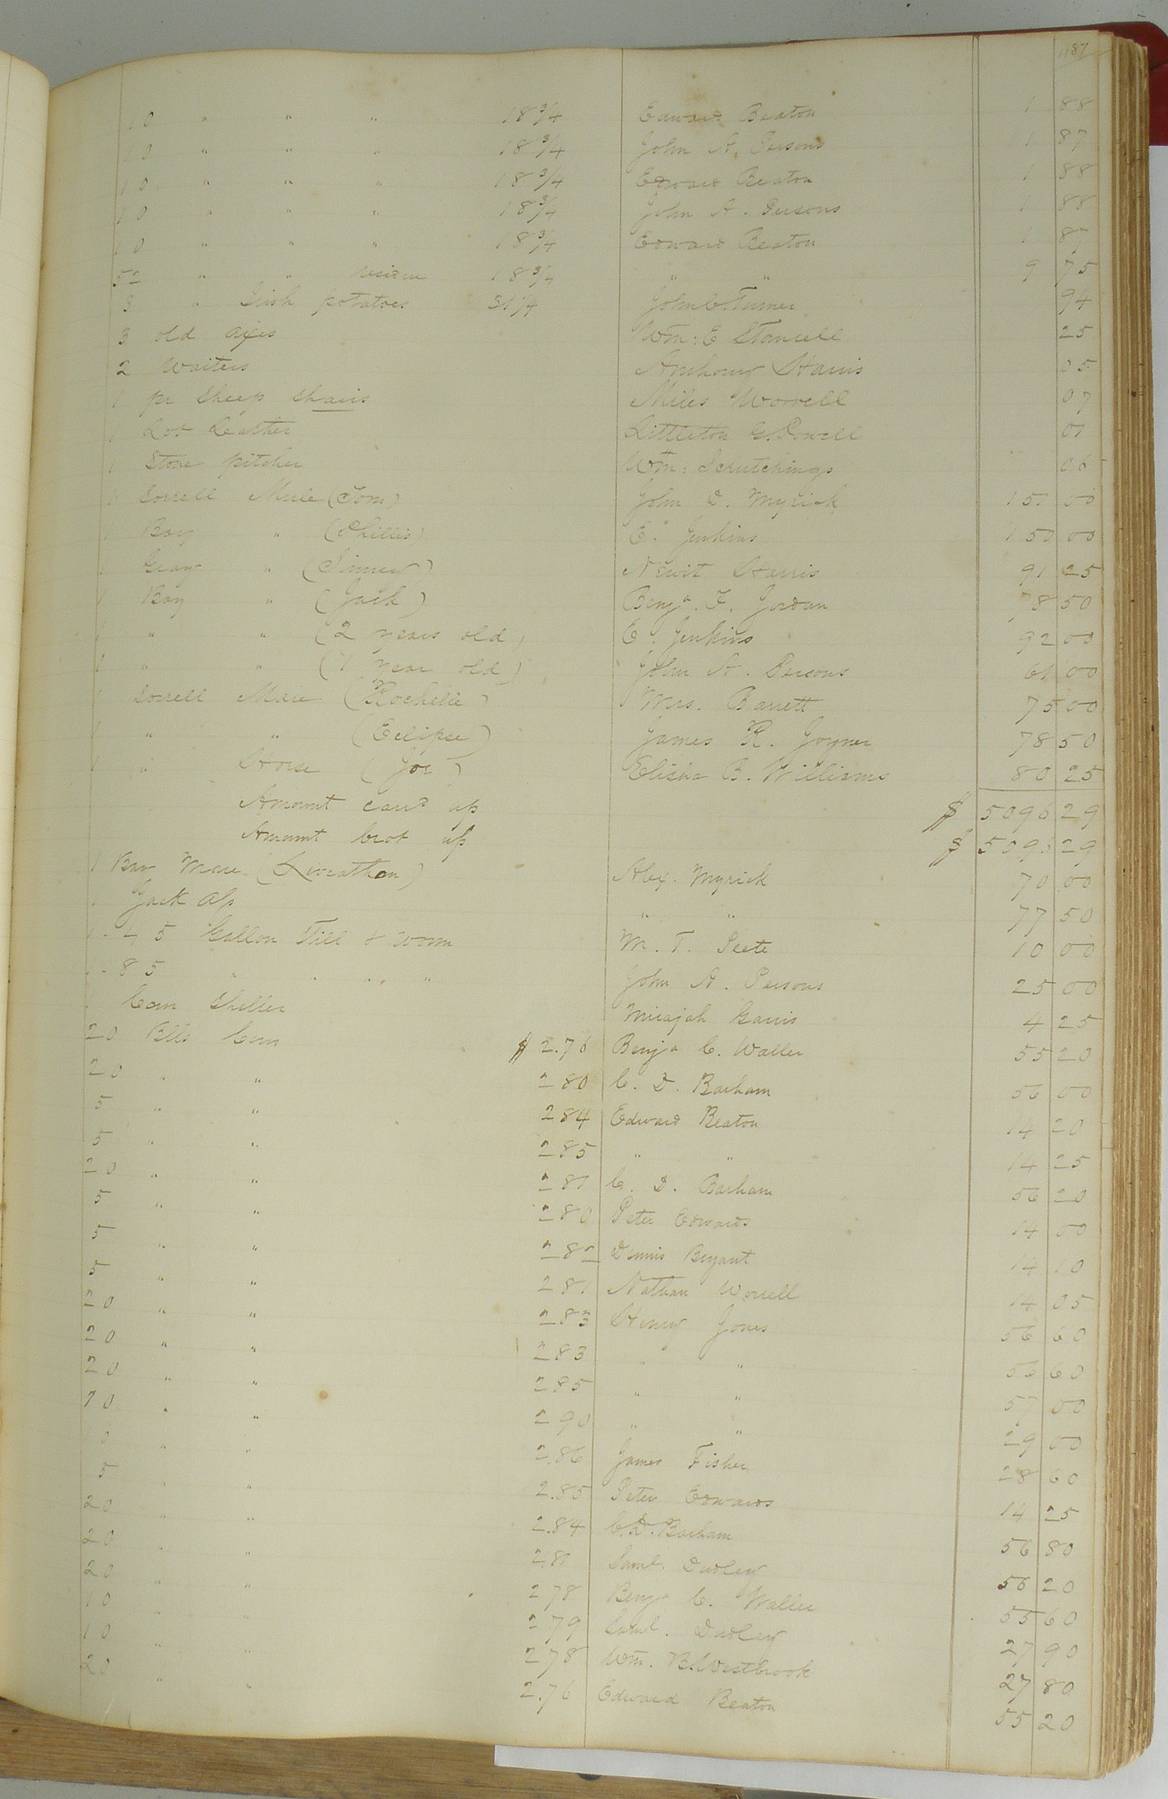 187
10 " " " 18 3/4 Edward Beaton 1 88
10 " " " 18 3/4 John A. Persons 1 87
10 " " " 18 3/4 Edward Beaton 1 88
10 " " " 18 3/4 John A. Persons 1 88
10 " " " 18 3/4 Edward Beaton 1 87
52 " " residue 18 3/4 " " 9 75
3 " Irish potatoes 31 1/4 John C. Turner 94
3 old axes Wm: E Stancell 25
2 Waiters Anthony Harris 05
1 pr Sheep Shairs Miles Worrell 07
1 Lot Leather Littleton Powell 01
1 Stone pitcher Wm: Scrutchings 06
1 Sorrell Mule (Tom) John D. Myrick 151 00
1 Bay " (Phillis) E. Jenkins 150 00
1 Gray " (Jimmy) Newit Harris 91 25
1 Bay " (Jack) Benja. F. Jordan 78 50
1 " " (2 years old) E. Jenkins 92 00
1 " " (1 year old) John A. Persons 61 00
1 Sorrell Mare (Rochelle) Mrs. Barrett 75 00
1 " " (Eclipse) James R. Joyner 78 50
1 " Horse (Joe) Elisha B. Williams 80 25
Amount card up $ 5096 29
Amount brot up $ 5096 29
1 Bay Mare (Leviathan) Alex. Myrick 70 00
1 Jack Ass " " 77 50
1 - 45 Gallon Still & Worm M. T. Peete 10 00
1 - 85 " " " " John A. Persons 25 00
1 Corn Sheller Micajah Garris 4 25
20 Blls Corn $ 2.76 Benja C. Waller 55 20
20 " " 280 C. D. Barham 56 00
5 " " 284 Edward Beaton 14 20
5 " " 285 " " 14 25
20 " " 281 C. D. Barham 56 20
5 " " 280 Peter Edwards 14 00
5 " " 282 Dennis Bryant 14 10
5 " " 281 Nathan Worrell 14 05
20 " " 283 Henry Jones 56 60
20 " " 283 " " 56 60
20 " " 285 " " 57 00
10 " " 290 " " 29 00
10 " " 2.86 James Fisher 28 60
5 " " 2.85 Peter Edwards 14 25
20 " " 2.84 C. D. Barham 56 80
20 " " 2.81 Saml. Dudley 56 20
20 " " 278 Benja C. Waller 55 60
10 " " 279 Saml. Dudley 27 90
10 " " 278 Wm. B. Westbrook 27 80
20 " " 2.76 Edward Beaton 55 20